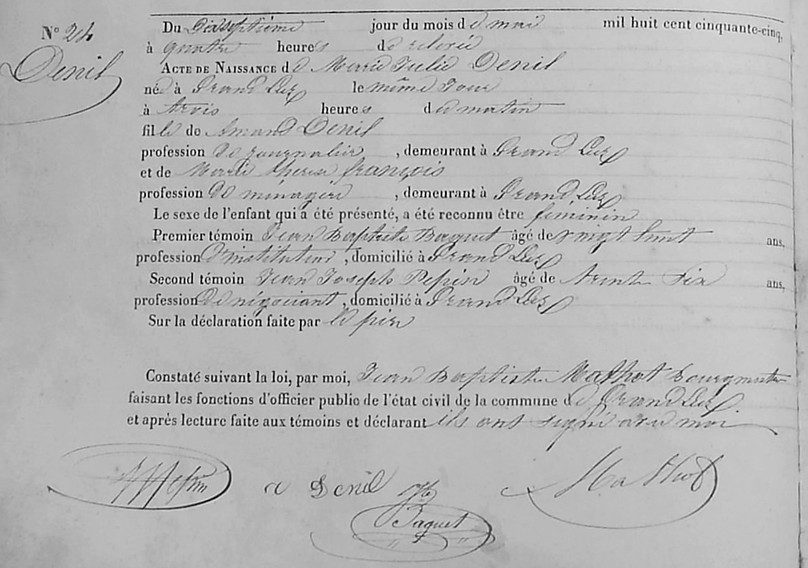 N° 24
Denil
Du dixseptième jour du mois de mai mil huit cent cinquante-cinq,
à quatre heures de relevée
ACTE DE NAISSANCE de Marie Julie Denil
née à Grand Leez le même jour
à trois heures du matin
fille de Amand Denil
profession de journalier, demeurant à Grand Leez
et de Marie Therèse françois
profession de ménagère, demeurant à Grand Leez
Le sexe de l'enfant qui a été présenté, a été reconnu être féminin
Premier témoin Jean Baptiste Baquet âgé de vingt huit ans,
profession d'instituteur, domicilié à Grand Leez
Second témoin Jean Joseph Pepin âgé de trente six ans,
profession de négociant, domicilié à Grand Leez
Sur la déclaration faite par le père
Constaté suivant la loi, par moi, Jean Baptiste Mathot bourgmestre
faisant les fonctions d'officier public de l'état civil de la commune de Grand Leez
et après lecture faite aux témoins et déclarant ils ont signé avec moi.
JJ Pepin a Denil Mathot
Baquet